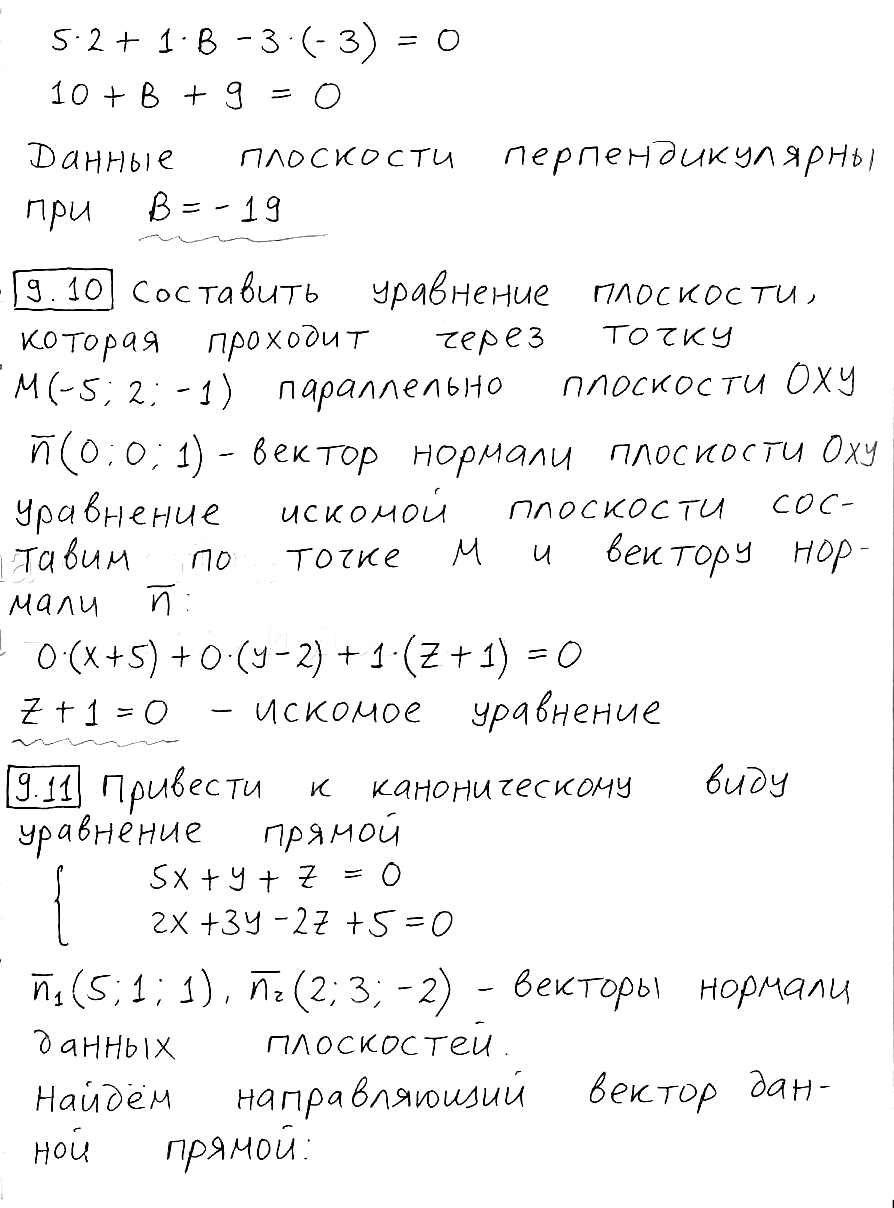 5·2 + 1·B - 3·(-3) = 0
10 + B + 9 = 0
Данные плоскости перпендикулярны
при B = -19
9.10 Составить уравнение плоскости,
которая проходит через точку
M(-5; 2; -1) параллельно плоскости Oxy
n̅(0; 0; 1) - вектор нормали плоскости Oxy
Уравнение искомой плоскости сос-
тавим по точке M и вектору нор-
мали n̅:
0·(x+5) + 0·(y-2) + 1·(z+1) = 0
z + 1 = 0 - искомое уравнение
9.11 Привести к каноническому виду
уравнение прямой
{ 5x + y + z = 0
2x + 3y - 2z + 5 = 0
n̅₁(5; 1; 1), n̅₂(2; 3; -2) - векторы нормали
данных плоскостей.
Найдём направляющий вектор дан-
ной прямой: